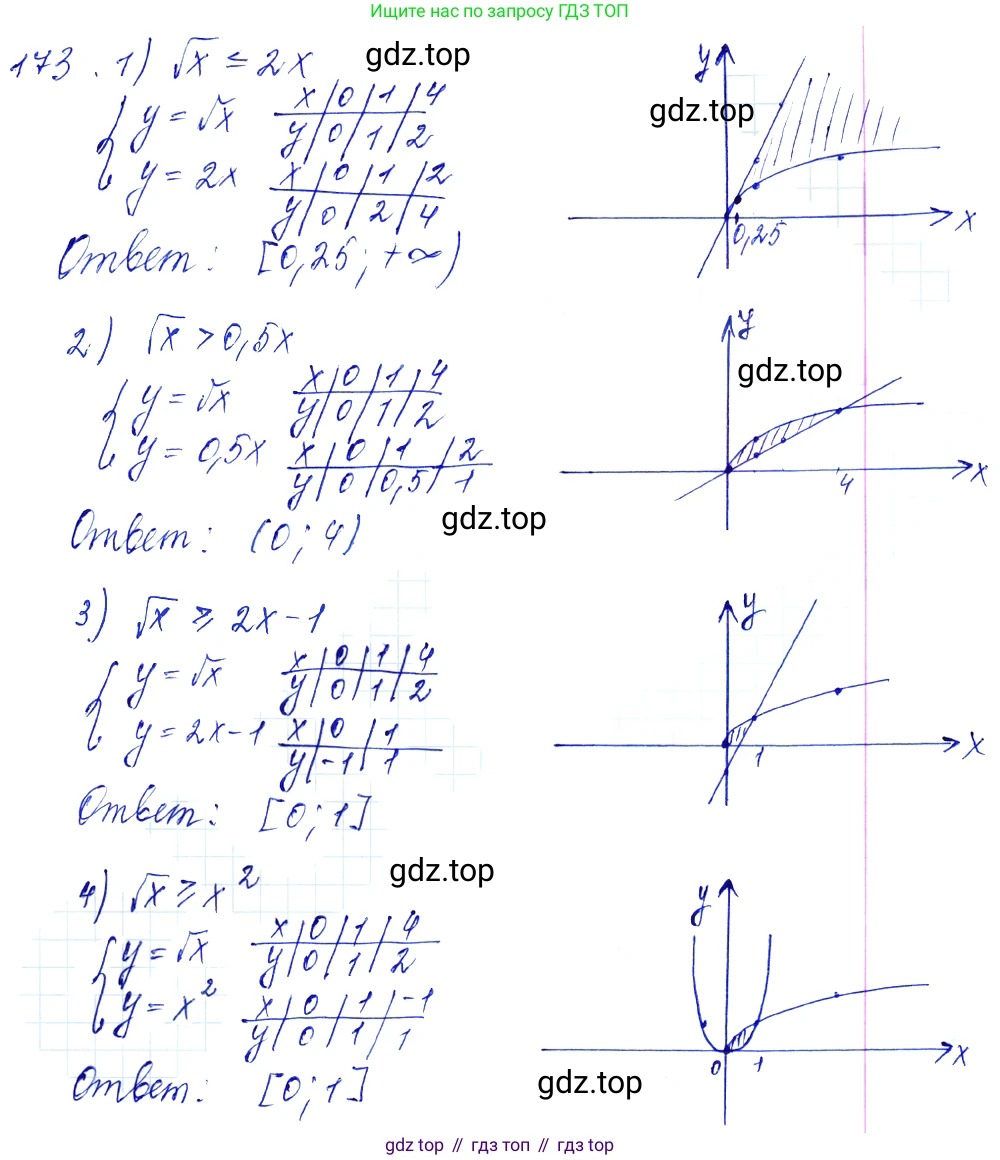 Ищите нас по запросу ГДЗ ТОП
173. 1) √x ≤ 2x
gdz.top
{ y = √x
x | 0 | 1 | 4
y | 0 | 1 | 2
y = 2x
x | 0 | 1 | 2
y | 0 | 2 | 4
Ответ: [0,25; +∞)
y
gdz.top
x
0,25
2) √x > 0,5x
{ y = √x
x | 0 | 1 | 4
y | 0 | 1 | 2
y = 0,5x
x | 0 | 1 | 2
y | 0 | 0,5 | 1
Ответ: (0; 4)
gdz.top
y
gdz.top
4
x
3) √x ≥ 2x - 1
{ y = √x
x | 0 | 1 | 4
y | 0 | 1 | 2
y = 2x - 1
x | 0 | 1
y | -1 | 1
Ответ: [0; 1]
y
1
x
gdz.top
4) √x ≥ x²
{ y = √x
x | 0 | 1 | 4
y | 0 | 1 | 2
y = x²
x | 0 | 1 | -1
y | 0 | 1 | 1
Ответ: [0; 1]
y
0
1
x
gdz.top
gdz top // гдз топ // гдз top